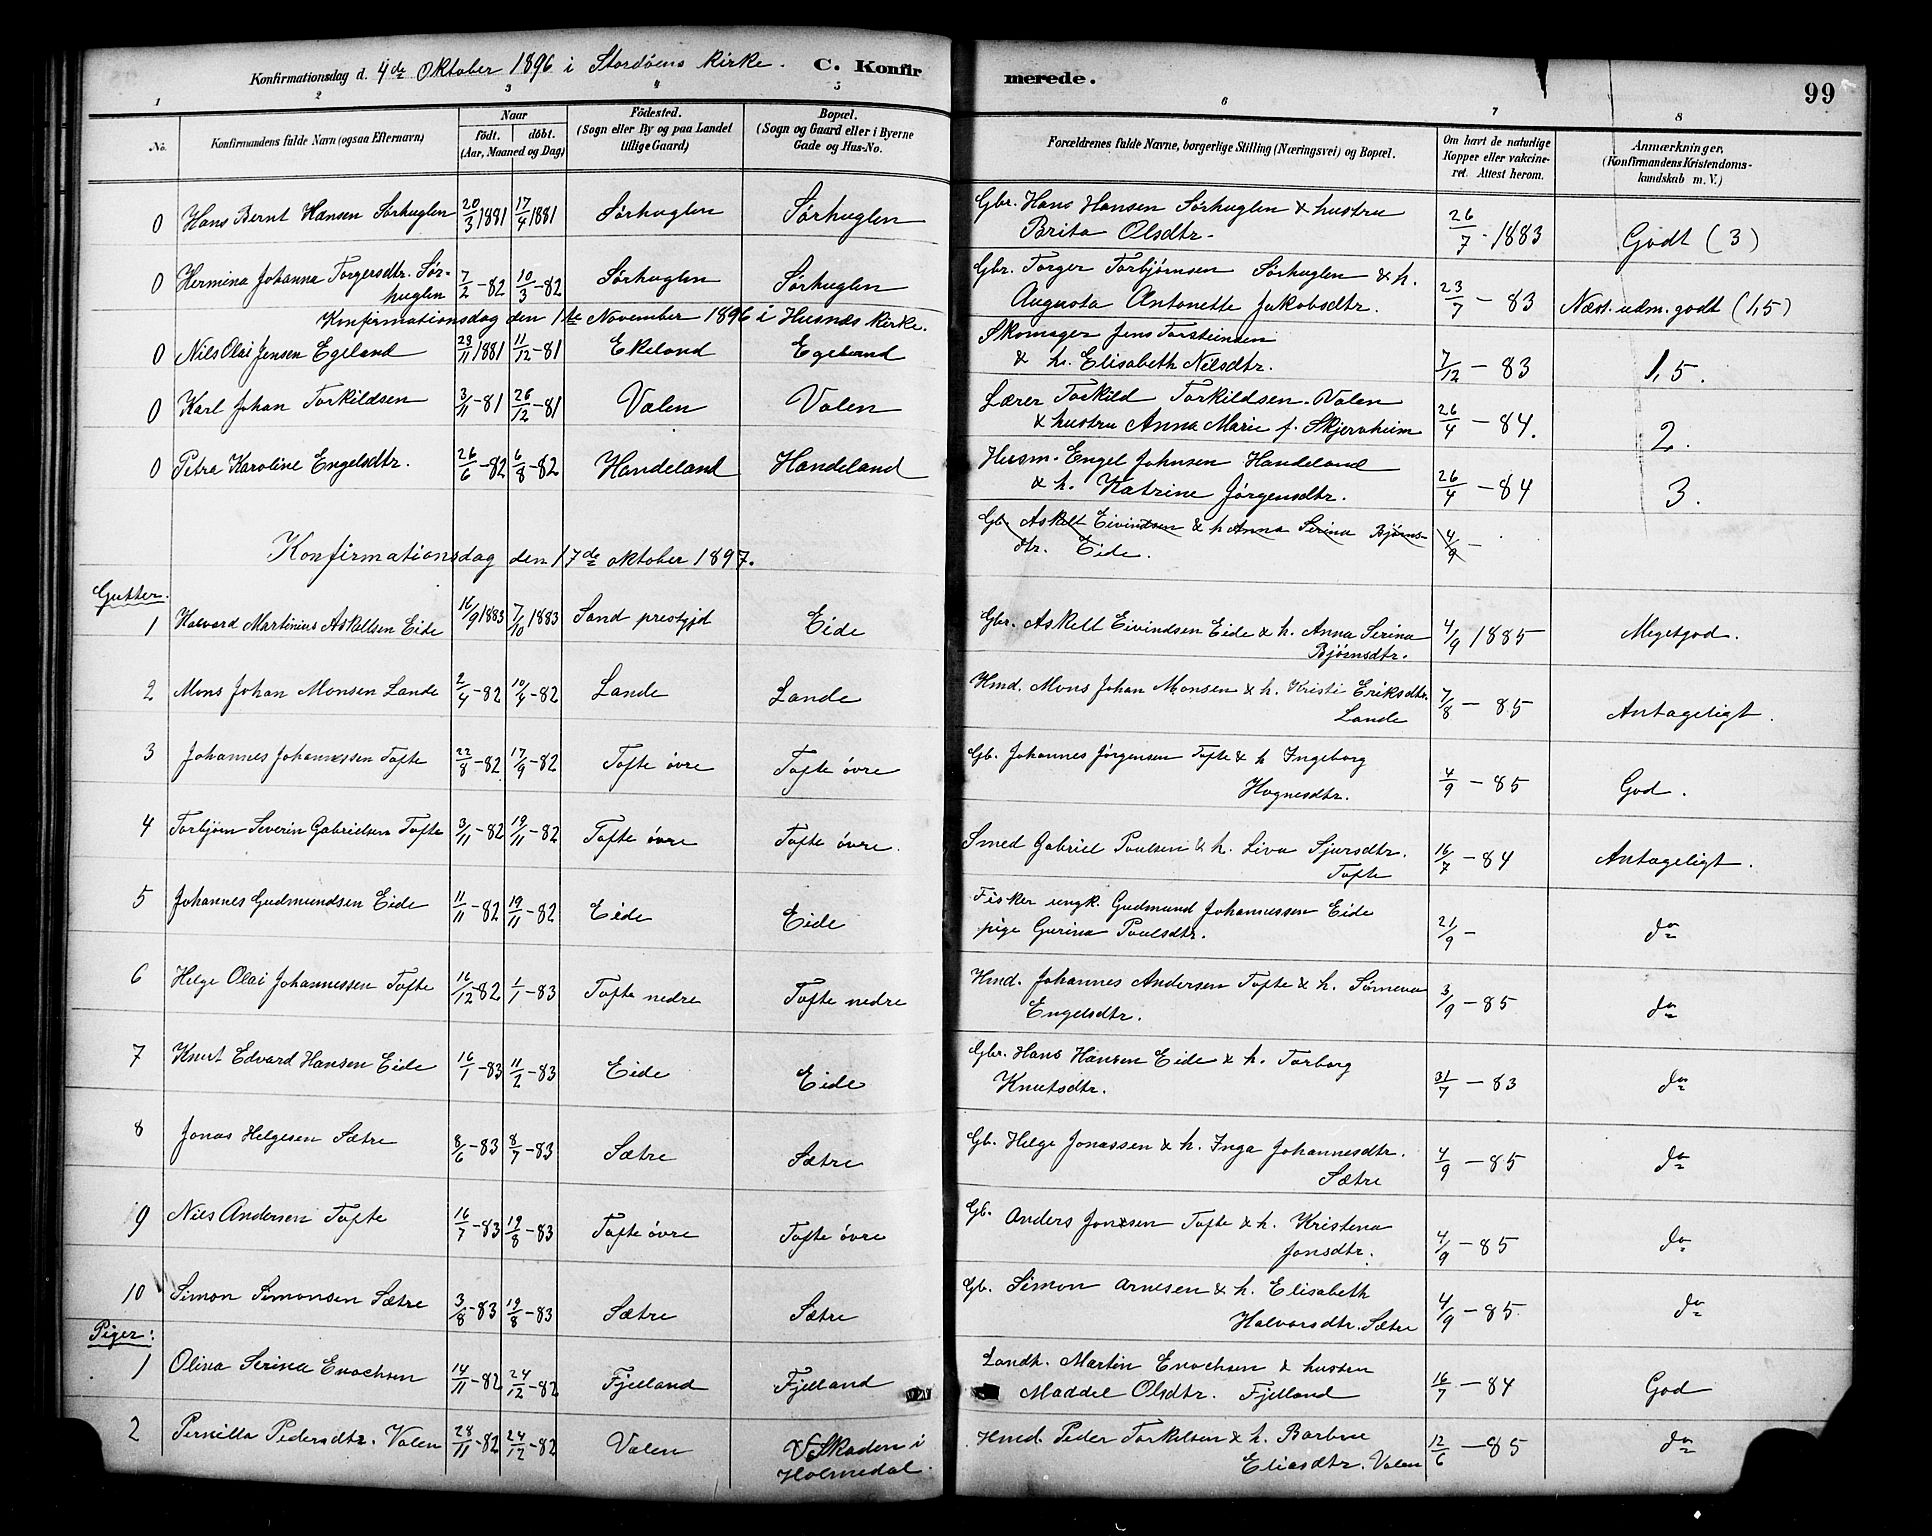 Konfirmationsdag d. 4de Oktober 1896 i Stordöens Kirke. C. Konfirmerede. 99
1 2 3 4 5 6 7 8
No. Konfirmandens fulde Navn (ogsaa Efternavn) Naar födt. döbt. (Aar, Maaned og Dag) Födested. (Sogn eller By og paa Landet tillige Gaard) Bopæl. (Sogn og Gaard eller i Byerne Gade og Hus-No. Forældrenes fulde Navne, borgerlige Stilling (Næringsvei) og Bopæl. Om havt de naturlige Kopper eller vakcineret. Attest herom. Anmærkninger, (Konfirmandens Kristendomskundskab m. V.)
0 Hans Bernt Hansen Sørhuglen 20/3 1881 17/4 1881 Sørhuglen Sørhuglen Gbr. Hans Hansen Sørhuglen & hustru Brita Olsdtr. 26/7 - 1883 Godt (3)
0 Hermina Johanna Torgersdtr. Sørhuglen 7/2 - 82 10/3 - 82 Sørhuglen Sørhuglen Gbr. Torger Torbjørnsen Sørhuglen & h. Augusta Antonette Jakobsdtr. 23/7 - 83 Næst. udm. godt (1,5)
Konfirmationsdag den 1te November 1896 i Husnæs Kirke.
0 Nils Olai Jensen Egeland 28/11 1881 11/12 - 81 Ekeland Egeland Skomager Jens Torsteinsen & h. Elisabeth Nilsdtr. 7/12 - 83 1,5.
0 Karl Johan Torkildsen 3/11 - 81 26/12 - 81 Valen Valen Lærer Torkild Torkildsen Valen & hustru Anna Marie f. Skjervheim 26/4 - 84. 2.
0 Petra Karoline Engelsdtr. 26/6 - 82 6/8 - 82 Handeland Handeland Husm. Engel Johnsen Handeland & h. Katrine Jørgensdtr. 26/4 - 84 3.
Gb. Askelt Eivindsen & h Anna Serina Bjørnsdtr. Eide. 4/9 -
Konfirmationsdag den 17de oktober 1897.
Gutter:
1 Halvard Martinius Askeltsen Eide 16/9 1883 7/10 1883 Sand prestgjd Eide Gbr. Askelt Eivindsen Eide & h. Anna Serina Bjørnsdtr. 4/9 1885 Megetgod.
2 Mons Johan Monsen Lande 2/4 - 82 10/4 - 82 Lande Lande Hmd. Mons Johan Monsen & h. Kristi Eriksdtr. Lande 7/8 - 85 Antageligt.
3 Johannes Johannessen Tofte 22/8 - 82 17/9 - 82 Tofte övre Tofte övre Gb. Johannes Jørgensen Tofte & h Ingeborg Hognesdtr. 4/9 - 85 God.
4 Torbjörn Severin Gabrielsen Tofte 3/11 - 82 19/11 - 82 Tofte övre Tofte övre. Smed Gabriel Poulsen & h. Liva Sjursdtr. Tofte 16/7 - 84 Antageligt.
5 Johannes Gudmundsen Eide 11/11 - 82 19/11 - 82 Eide Eide Fisker ungk. Gudmund Johannessen Eide pige Gurina Poulsdtr. 21/9 - do
6 Helge Olai Johannessen Tofte 16/12 - 82 1/1 - 83 Tofte nedre Tofte nedre Hmd. Johannes Andersen Tofte & h. Sörneva Engelsdtr. 3/9 - 85 do
7 Knut Edvard Hansen Eide 16/1 - 83 11/2 - 83 Eide Eide Gbr. Hans Hansen Eide & h. Torborg Knutsdtr. 31/7 - 83 do
8 Jonas Helgesen Sætre 8/6 - 83 8/7 - 83 Sætre Sætre Gb. Helge Jonassen & h. Inga Johannesdtr. Sætre 4/9 - 85 do
9 Nils Andersen Tofte 16/7 - 83 19/8 - 83 Tofte övre Tofte övre Gb. Anders Jonsen Tofte & h. Kristena Jonsdtr. 4/9 - 85 do
10 Simon Simonsen Sætre 3/8 - 83 19/8 - 83 Sætre Sætre Gb. Simon Arnesen & h. Elisabeth Halvorsdtr. Sætre 4/9 - 85. do
Piger:
1 Olina Serina Enochsen 14/11 - 82 24/12 - 82 Fjelland Fjelland Landh. Martin Enochsen & hustru Maddel Olsdtr. Fjelland 16/7 - 84 God
2 Pernilla Pedersdtr. Valen 28/11 - 82 24/12 - 82 Valen Skaden i Holmedal. Hmd. Peder Torkelsen & h. Barbra Eliasdtr. Valen 12/6 - 85 do